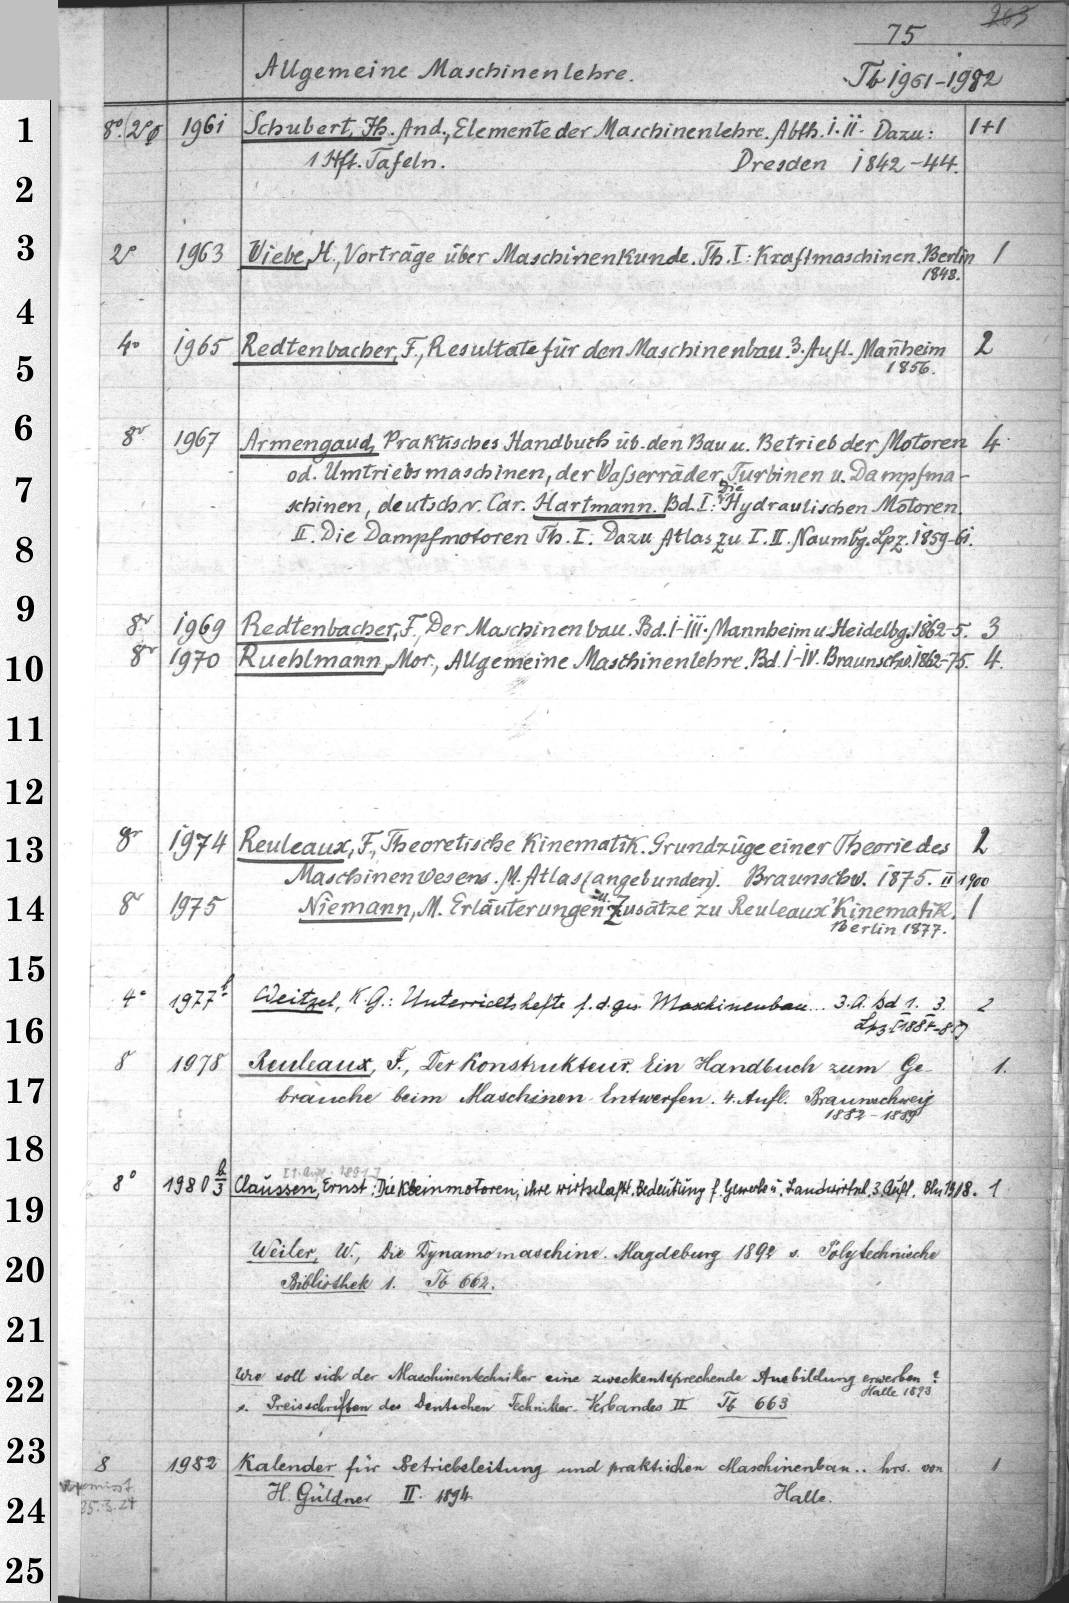 75 263
Allgemeine Maschinenlehre. Tb 1961-1982
1 8º. (2º) 1961 Schubert, Fh. And., Elemente der Maschinenlehre. Abth. I. II. Dazu: 1+1
1 Hft. Tafeln. Dresden 1842-44.
2
3 2º 1963 Wiebe, H., Vorträge über Maschinenkunde. Th. I: Kraftmaschinen. Berlin 1
1848.
4
4º 1965 Redtenbacher, F., Resultate für den Maschinenbau. 3. Aufl. Mañheim 2
5 1856.
6 8º 1967 Armengaud, Praktisches Handbuch üb. den Bau u. Betrieb der Motoren 4
od. Umtriebsmaschinen, der Waßerräder, Turbinen u. Dampfma-
7 schinen, deutsch v. Car. Hartmann. Bd. I: Die Hydraulischen Motoren.
8 II. Die Dampfmotoren Th. I. Dazu Atlas zu I. II. Naumbg. Lpz. 1859-61.
9 8º 1969 Redtenbacher, F., Der Maschinenbau. Bd. I-III. Mannheim u. Heidelbg. 1862-5. 3
10 8º 1970 Ruehlmann, Mor., Allgemeine Maschinenlehre. Bd. I-IV. Braunschw. 1862-75. 4.
11
12
13 8º 1974 Reuleaux, F., Theoretische Kinematik. Grundzüge einer Theorie des 2
Maschinenwesens. M. Atlas (angebunden). Braunschw. 1875. II 1900
14 8º 1975 Niemann, M. Erläuterungen u. Zusätze zu Reuleaux' Kinematik. 1
Berlin 1877.
15
4º 1977 b Weitzel, K. G.: Unterrichtshefte f. d. ges. Maschinenbau... 3. A. Bd 1. 3. 2
16
8 1978 Reuleaux, F., Der Konstrukteur. Ein Handbuch zum Ge- 1.
17 brauche beim Maschinen-Entwerfen. 4. Aufl. Braunschweig
1882-1889
18
8º 1980 b/3 Claussen, Ernst: Die Kleinmotoren, ihre wirtschaftl. Bedeutung f. Gewerbe u. Landwirtsch. 3. Aufl. Bln 1918. 1
19
Weiler, W., Die Dynamomaschine. Magdeburg 1892 s. Polytechnische
20 Bibliothek 1. Tb 662.
21
22 Wie soll sich der Maschinentechniker eine zweckentsprechende Ausbildung erwerben?
Halle 1893
s. Preisschriften des Deutschen Techniker-Verbandes II Tb 663
23 8 1982 Kalender für Betriebsleitung und praktischen Maschinenbau.. hrs. von 1
vermisst H. Güldner II. 1894. Halle.
24 25.3.24
25